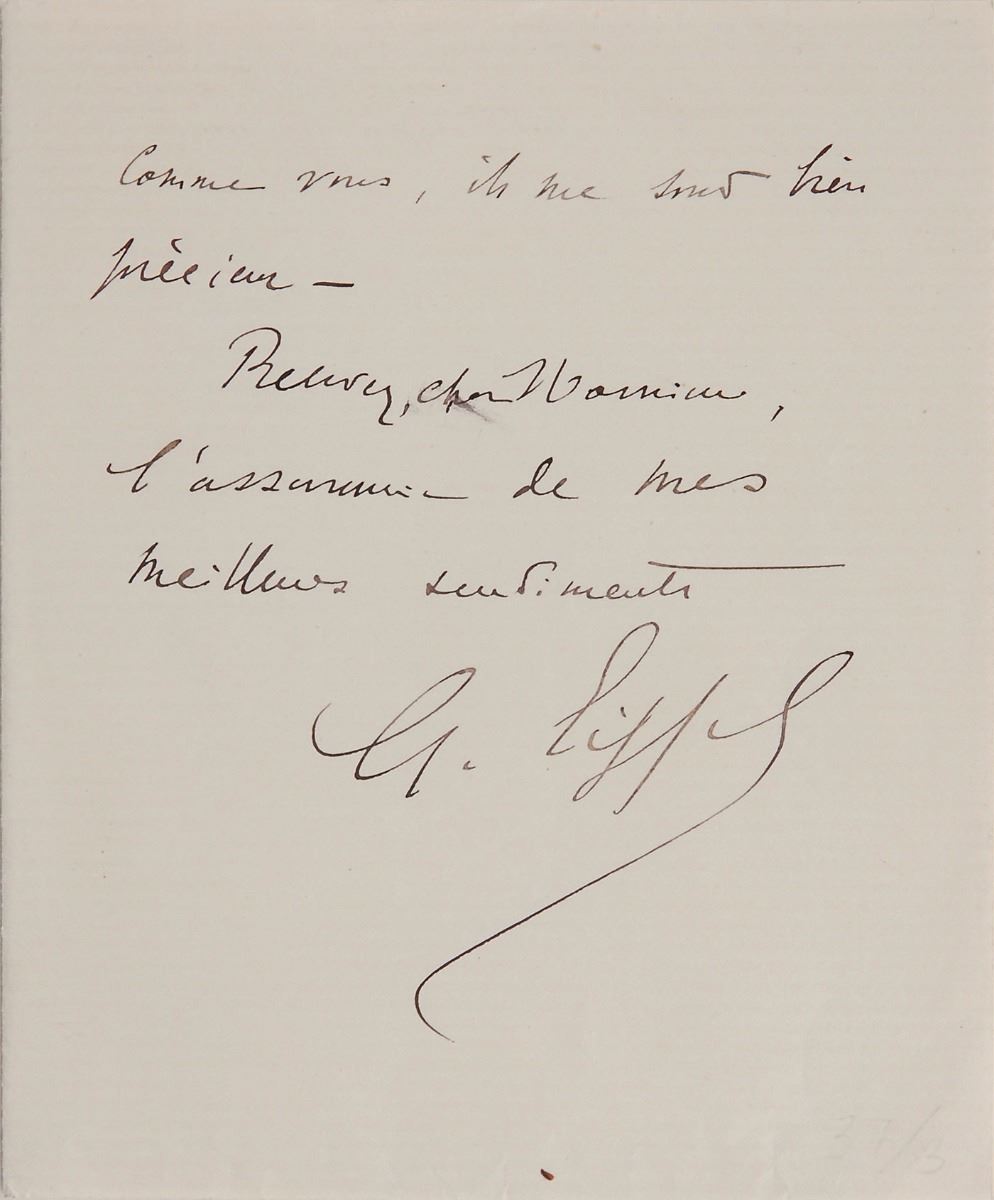 Comme vous, ils me sont bien
précieux —
Recevez, cher Monsieur,
l'assurance de mes
meilleurs sentiments
G. Eiffel